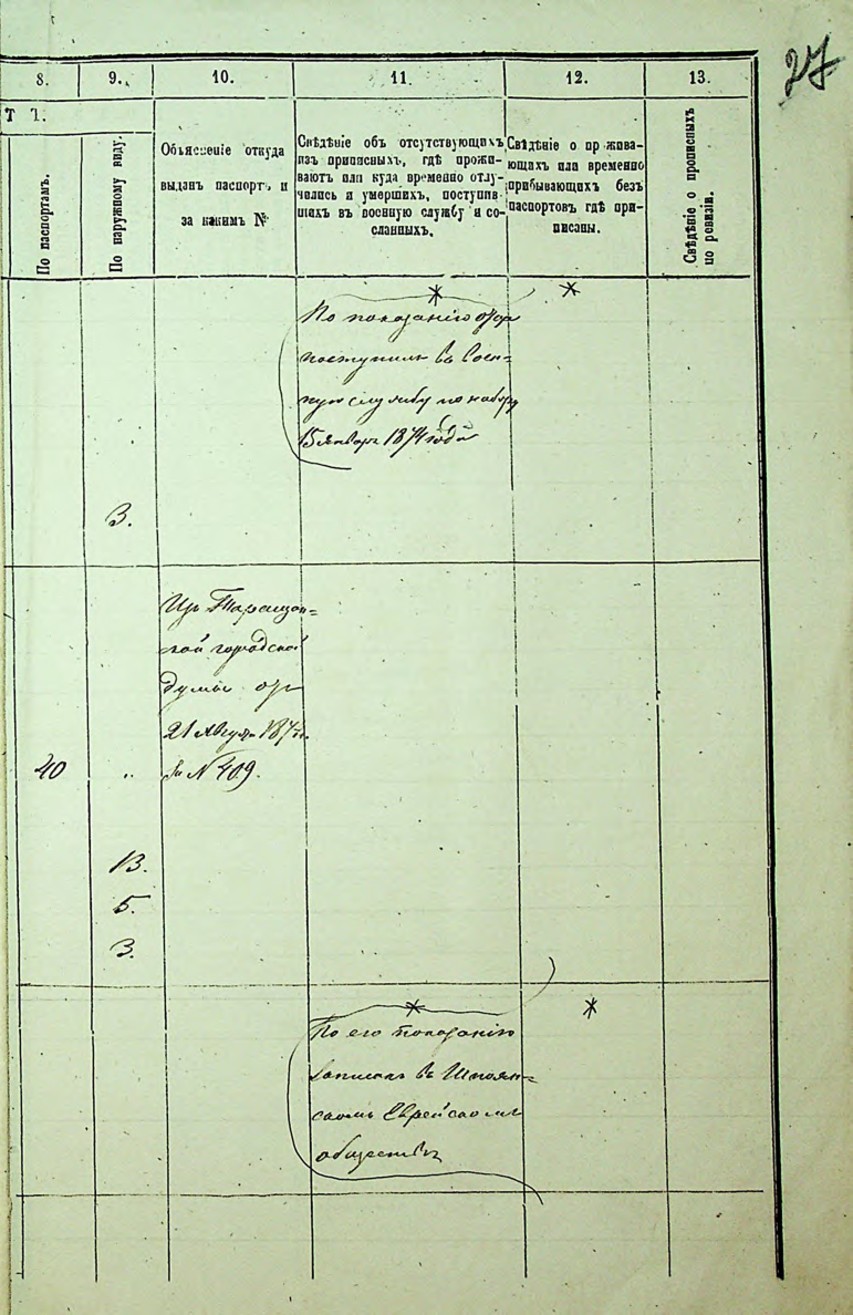 27
8.
9.
10.
11.
12.
13.
Т І.
По паспортамъ.
По наружному виду.
Объясненіе откуда
выданъ паспортъ и
за какимъ №
Свѣдѣніе объ отсутствующихъ
изъ приписныхъ, гдѣ прожи-
ваютъ или куда временно отлу-
чились и умершихъ, поступив-
шихъ въ военную службу и со-
сланныхъ.
Свѣдѣніе о прожива-
ющихъ или временно
прибывающихъ безъ
паспортовъ гдѣ при-
писаны.
Свѣдѣніе о прописныхъ
по ревизіи.
По показанію отца
поступилъ въ Воен-
ную службу по набору
15 января 1874 года
3.
Изъ Таращан-
ской городской
думы отъ
21 Августа
за № 409.
40
„
13.
5.
3.
По его показанію
записанъ въ Шполян-
скомъ Еврейскомъ
обществѣ